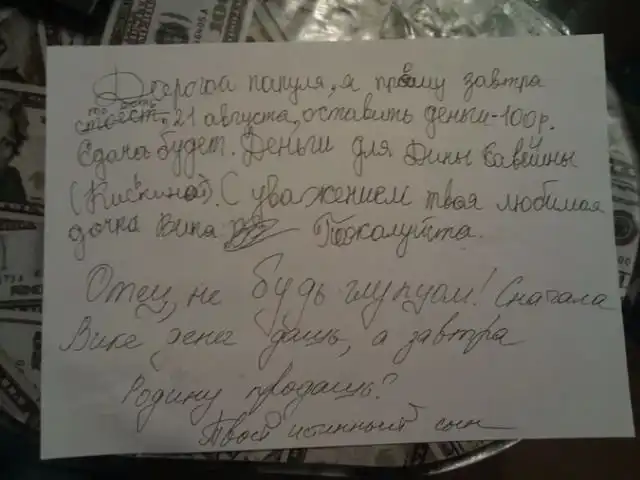 Дорогой папуля, я прошу завтра
то есть 21 августа, оставить деньги-100р.
Сдача будет. Деньги для Дины Савейны
(Кискиной). С уважением твоя любимая
дочка Вика Пожалуйста.
Отец, не будь глупцом! Сначала
Вике денег дашь, а завтра
Родину продашь?
Твой истинный сын